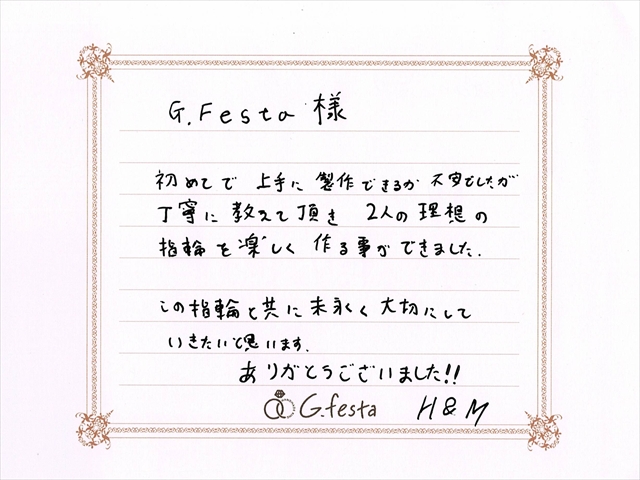 G.Festa 様
初めてで 上手に 製作できるか 不安でしたが
丁寧に 教えて頂き 2人の理想の
指輪を楽しく 作る事ができました.
この指輪と共に末永く 大切にして
いきたいと思います.
ありがとうございました!!
G.festa H&M